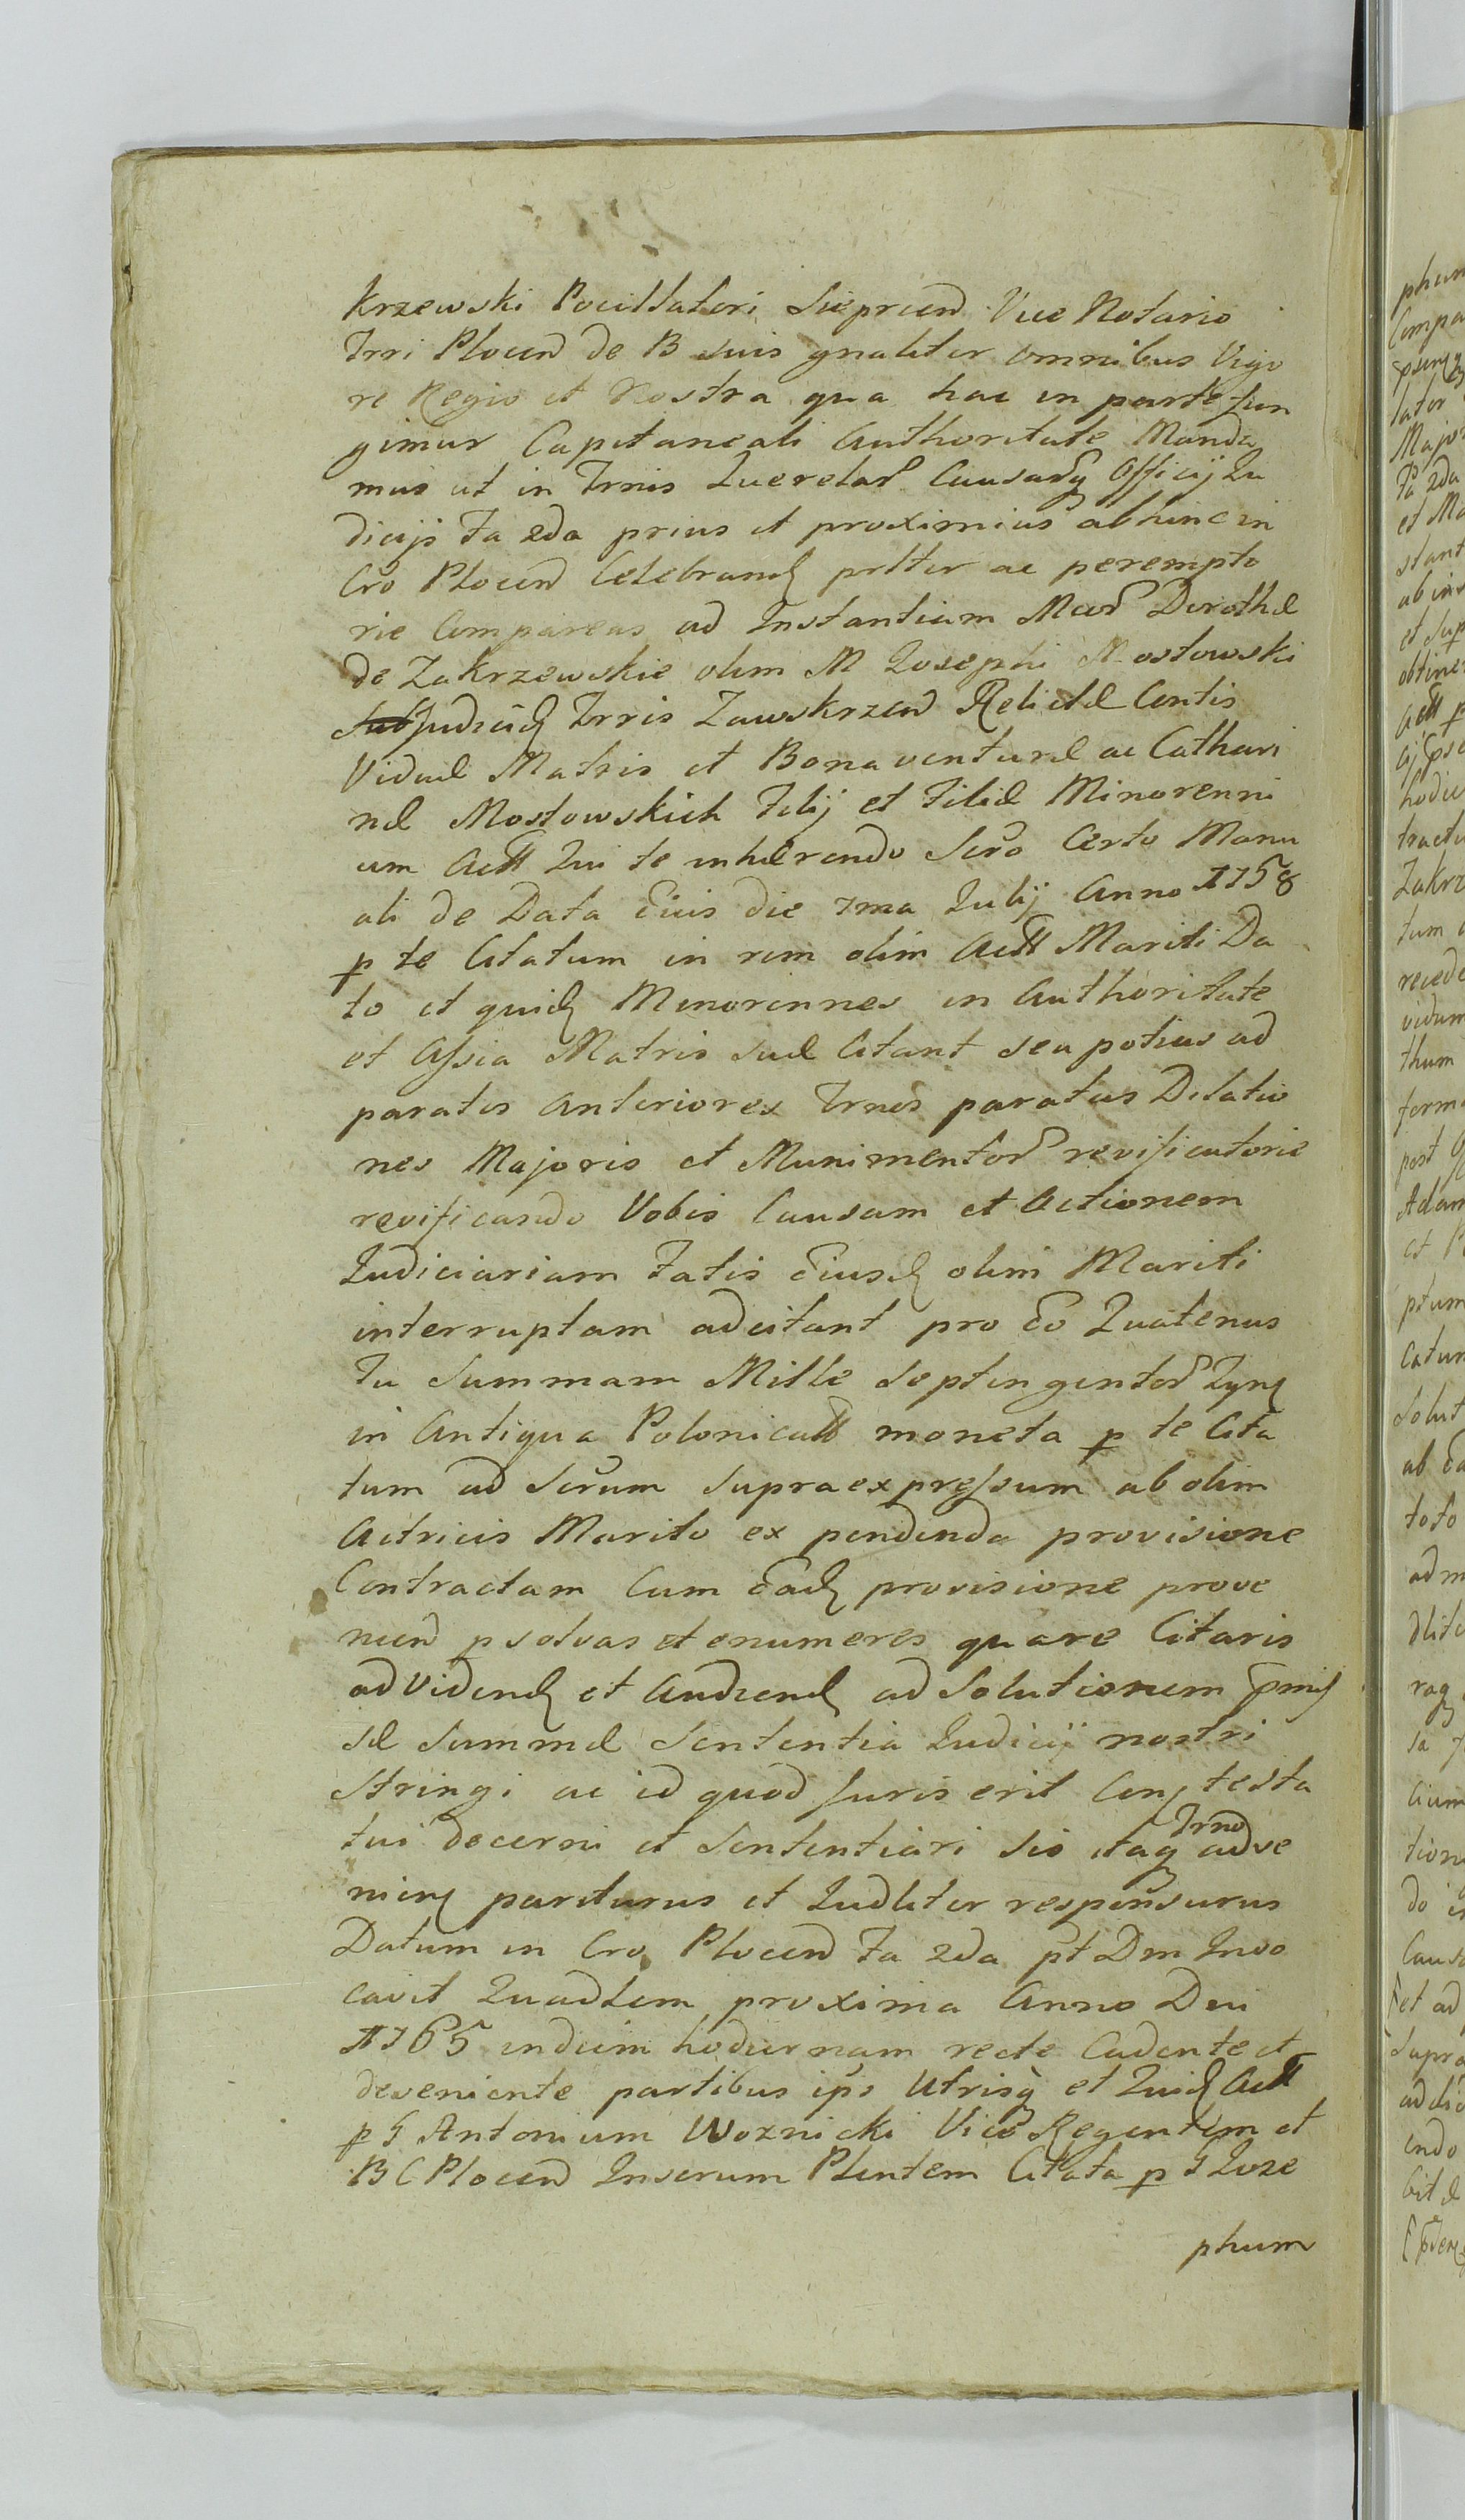 krzewski Pocillatori Sieprcen Vice Notario
Trri Plocen de B suis gnaliter omnibus Vigo
re Regio et Nostra qua hac in parte fun
gimur Capitaneali Authoritate Manda
mus ut in Trnis Querelar Causarq Officij Ju
dicijs Fa 2da prius et proximius abhinc in
Cro Plocen Celebrand prltter ac perempto
rie Compareas ad Instantiam Mcar Dorothæ
de Zakrzewskie olim M Josephi Mostowski
Judicid Trris Zawskrzen Relictæ Contis
Viduæ Matris et Bonaventuræ ac Cathari
næ Mostowskich Filij et Filiæ Minorenni
um Actt Qui te inhærendo Scro Certo Manu
ali de Data Eius die 7ma Julij Anno 1758
p te Citatum in rem olim Actt Mariti Da
to et quid Minorennes in Authoritate
et Assia Matris suæ Citant seu potius ad
paratis Anteriores Trnos paratus Dilatio
nes Majoris et Munimentor revificatorie
revificando Vobis Causam et Actionem
Judiciariam Fatis Eiusd olim Mariti
interruptam adcitant pro Eo Quatenus
Tu Summam Mille Septingentor Tynf
in Antiqua Polonicali moneta p te Cita
tum ad Scrum supraexpressum ab olim
Actricis Marito ex pendenda provisione
Contractam Cum Ead provisione prove
nien psolvas et enumeres quare Citaris
ad Vidend et Audiend ad Solutionem pmis
sæ Summæ Sententia Judicij nostri
stringi ac id quod Juris erit Con testa
tui decerni et Sententiari sis itaq Trno adve
nien pariturus et Judliter responsurus
Datum in Cro Plocen Fa 2da pt Dm Invo
cavit Quadlem proxima Anno Dni
1765 indeim hodiernam recte Cadente et
deveniente partibus ips Utrisq et Quid Actt
p G Antonium Woznicki Vice Regentem et
B C Plocen Inserum Plentem Citata p G Joze
phum